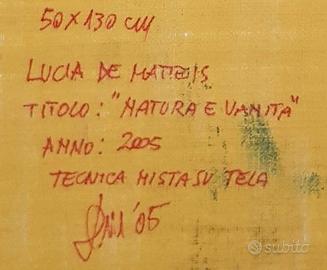 50 x 130 cm
LUCIA DE MATTEIS
TITOLO: "NATURA E VANITÀ"
ANNO: 2005
TECNICA MISTA SU TELA
'05
subito